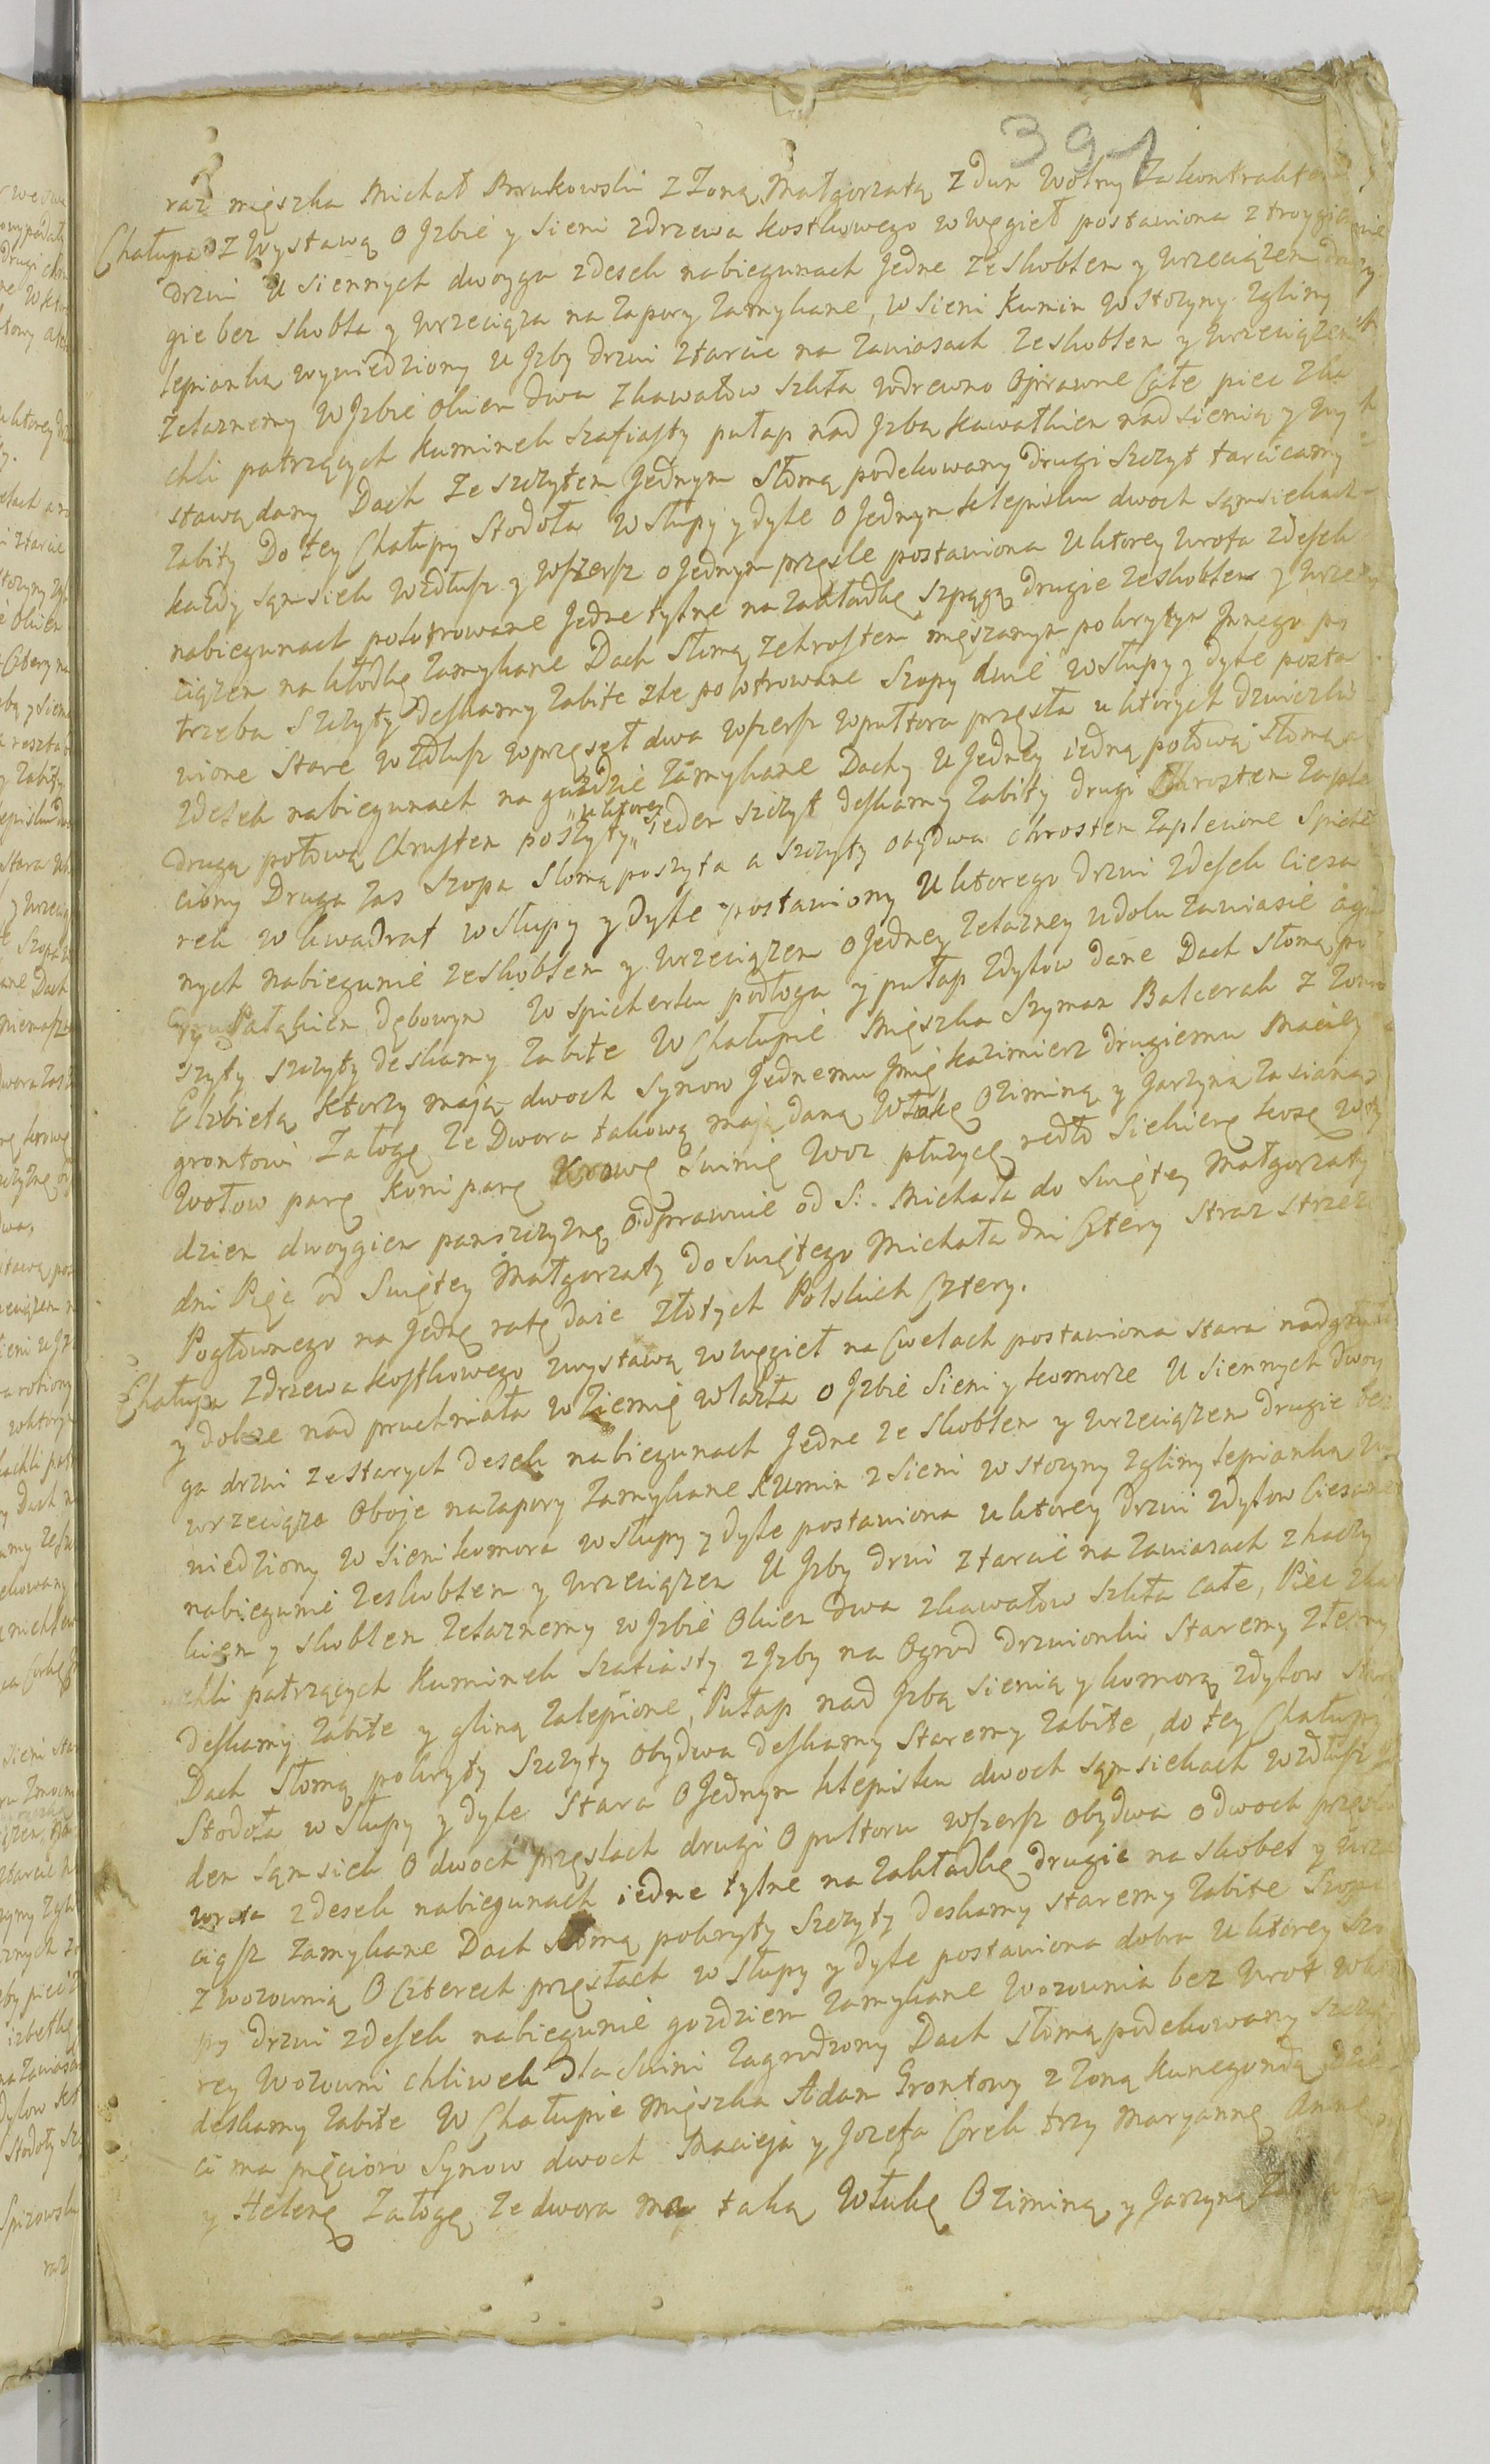 391
raz mięszka Michał Brukowski z Zoną Małgorzatą Zdun Wolny Za kontraktem
Chałupa z Wystawą o Jzbie y Sieni z drzewa kostkowego w węgieł postawiona z troygiem
drzwi U siennych dwoyga z desek na biegunach Jedne ze skoblem y wrzeciązem dru
gie bez skobla y wrzeciąza na zapory zamykane, w Sieni Kumin w stozyny z gliny
lepianką wywiedziony u Jzby drzwi z tarcic na zawiasach ze skoblem y wrzeciązem
Zelaznemy w Jzbie Okien dwa z kawałow szkła w drewno oprawne Całe piec z ka
chli patrzących Kuminek szafiasty pułap nad Jzbą kawałkien nad sienią y wy
stawą dany Dach ze szczytem Jednym Słomą podekowany drugi szczyt tarcicamy
zabity Do tey Chałupy Stodoła w słupy y dyle o Jednym klepisku dwoch sąmsiekach
kazdy sąmsiek wzdłusz y wszersz o Jednym przęsle postawiona U ktorey wrota z desek
na biegunach polotrowane Jedne tylne na zakładkę szpągą drugie ze skoblem y wrze
ciązem na kłodkę zamykane Dach Słomą ze krostem mięszanym pokrytym Jnnego po
trzeba Szczyty deskamy zabite złe polotrowane Szopy dwie w słupy y dyle posta
wione stare wzdłusz w przęseł dwa wszersz w pułtora przęsła u ktorych dzwiczki
z desek na biegunach na gozdzie zamykane Dachy U Jedney iedną połową słomą a
drugą połową Chrustem poszyty "u ktorey" ieden szczyt deskamy zabity drugi Chrostem zaple
ciony Druga zas Szopa Słomą poszyta a szczyty obydwa chrostem zaplecione Spichle
rek w kwadrat w słupy y dyle postawiony U ktorego drzwi z desek Ciesa
nych na biegunie ze skoblem y wrzeciązem o Jedney zelazney u dołu zawiasie a gu
ry Pałąkiem dębowym W spicherku podłoga y pułap z dylow dane Dach słomą po
szyty szczyty deskamy zabite W Chałupie Mięszka Szyman Balcerak z Zoną
Elzbietą ktorzy mają dwoch synow Jednemu Jmię kazimierz drugiemu Maciey
grontowi Załogę ze Dwora takową mają daną Włokę Oziminą y Jarzyną zasianą
Wołow parę koni parę Krowę Swinię Woz płuzycę redło siekierę kosę w ty
dzien dwoygiem panszczyznę odprawuie od S: Michała do Swiętey Małgorzaty
dni Pięc od Swiętey Małgorzaty do Swiętego Michała dni Cztery straz strzeze
Pogłownego na Jedną ratę daie złotych Polskich Cztery.
Chałupa z drzewa kostkowego z wystawą w węgieł na Cwelach postawiona stara nadgniła
y dobrze nad pruchniała w Ziemię wlazła o Jzbie Sieni y komorze U siennych dwoy
ga drzwi ze starych desek na biegunach Jedne ze skoblem y wrzeciązem drugie bez
wrzeciąza Oboje na zapory zamykane Kumin z Sieni w stozyny z gliny lepianką wy
wiedziony w Sieni komora w słupy y dyle postawiona u ktorey drzwi z dylow Ciesane
na biegunie ze skoblem y wrzeciązem U Jzby drzwi z tarcic na zawiasach z haczy
kiem y skoblem zelaznemy w Jzbie Okien dwa z kawałow szkła całe, Piec z ka
chli patrzących Kuminek szafiasty z Jzby na Ogrod drzwionki staremy złemy
deskamy zabite y gliną zalepione, Pułap nad Jzbą sienią y komorą z dylow
Dach Słomą pokryty szczyty obydwa deskamy staremy zabite, do tey Chałupy
Stodoła w słupy y dyle stara o Jednym klepisku dwoch sąmsiekach wzdłusz Je
den sąmsiek o dwoch przęslach drugi o pułtoru wszersz obydwa o dwoch przęslach
wrota z desek na biegunach iedne tylne na zakładkę drugie na skobel y wrze
ciąsz zamykane Dach słomą pokryty szczyty deskamy staremy zabite Szopa
z wozownią o Czterech przęsłach w słupy y dyle postawiona dobra U ktorey Szo
py drzwi z desek na biegunie gozdziem zamykane Wozownia bez wrot w kto
rey Wozowni chliwek dla Swini zagrodzony Dach Słomą podekowany szczyty
deskamy zabite W Chałupie Mięszka Adam Grontowy z Zoną kunegundą dzie
ci ma pięcioro Synow dwoch Macieja y Jozefa Corek trzy Maryannę Annę
y Helenę Załogę ze dwora ma taką Włukę Oziminą y Jarzyną